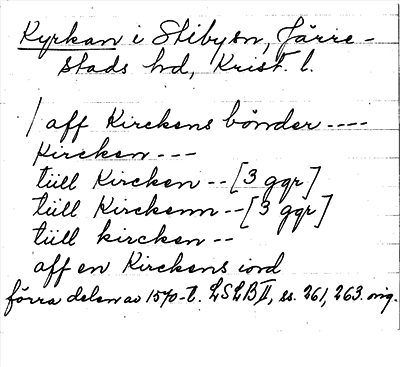 Kyrkan i Stibysn, Järre-
stads hd, Krist. l.
/ aff Kirckens bönder ----
Kircken ---
tüll Kircken -- [3 ggr]
tüll Kirckenn -- [3 ggr]
tüll kircken --
aff en Kirckens iord
förra delen av 1570-t. LSLB II, ss. 261, 263. orig.